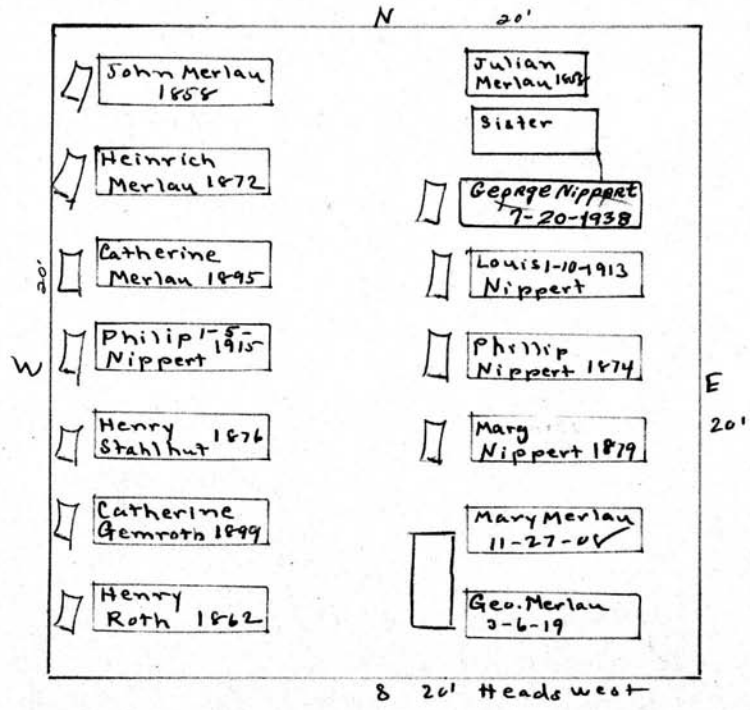 N 20'
John Merlau
1858
Heinrich
Merlau 1872
Catherine
Merlau 1895
20'
Philip 1-5-
Nippert 1915
W
Henry
Stahlhut 1876
Catherine
Gemroth 1899
Henry
Roth 1862
Julian
Merlau 1858
Sister
George Nippert
7-20-1938
Louis 1-10-1913
Nippert
Phillip
Nippert 1874
E
20'
Mary
Nippert 1879
Mary Merlau
11-27-08
Geo. Merlau
3-6-19
S 20' Heads west